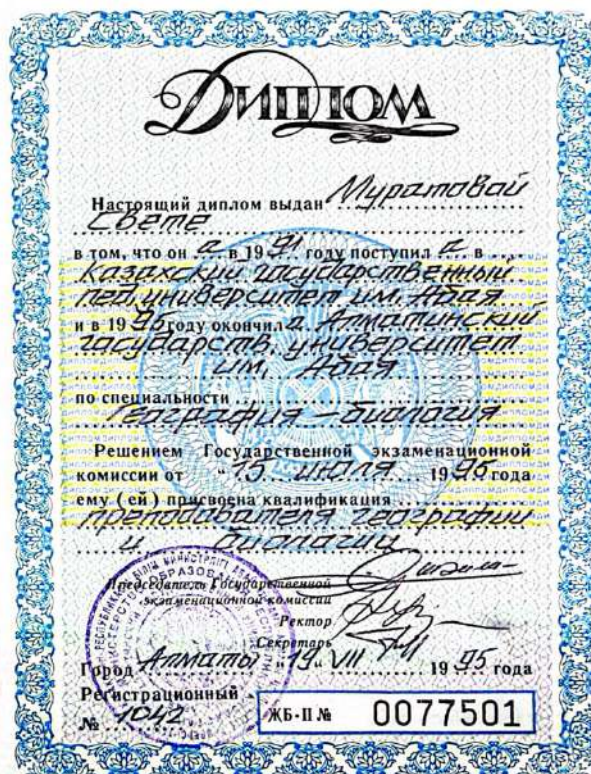 Диплом
Настоящий диплом выдан Муратовой
Свете
в том, что он а в 1991 году поступил а в
Казахский государственный
пед. университет им. Абая
и в 1995 году окончил а Алматинский
государств. университет
им. Абая
по специальности
География – биология
Решением Государственной экзаменационной
комиссии от "15 июля 1995 года
ему (ей) присвоена квалификация
преподавателя географии
и биологии
Председатель Государственной
экзаменационной комиссии
Ректор
Секретарь
Город Алматы "19" VII 1995 года
Регистрационный
№ 1042
ЖБ-II № 0077501